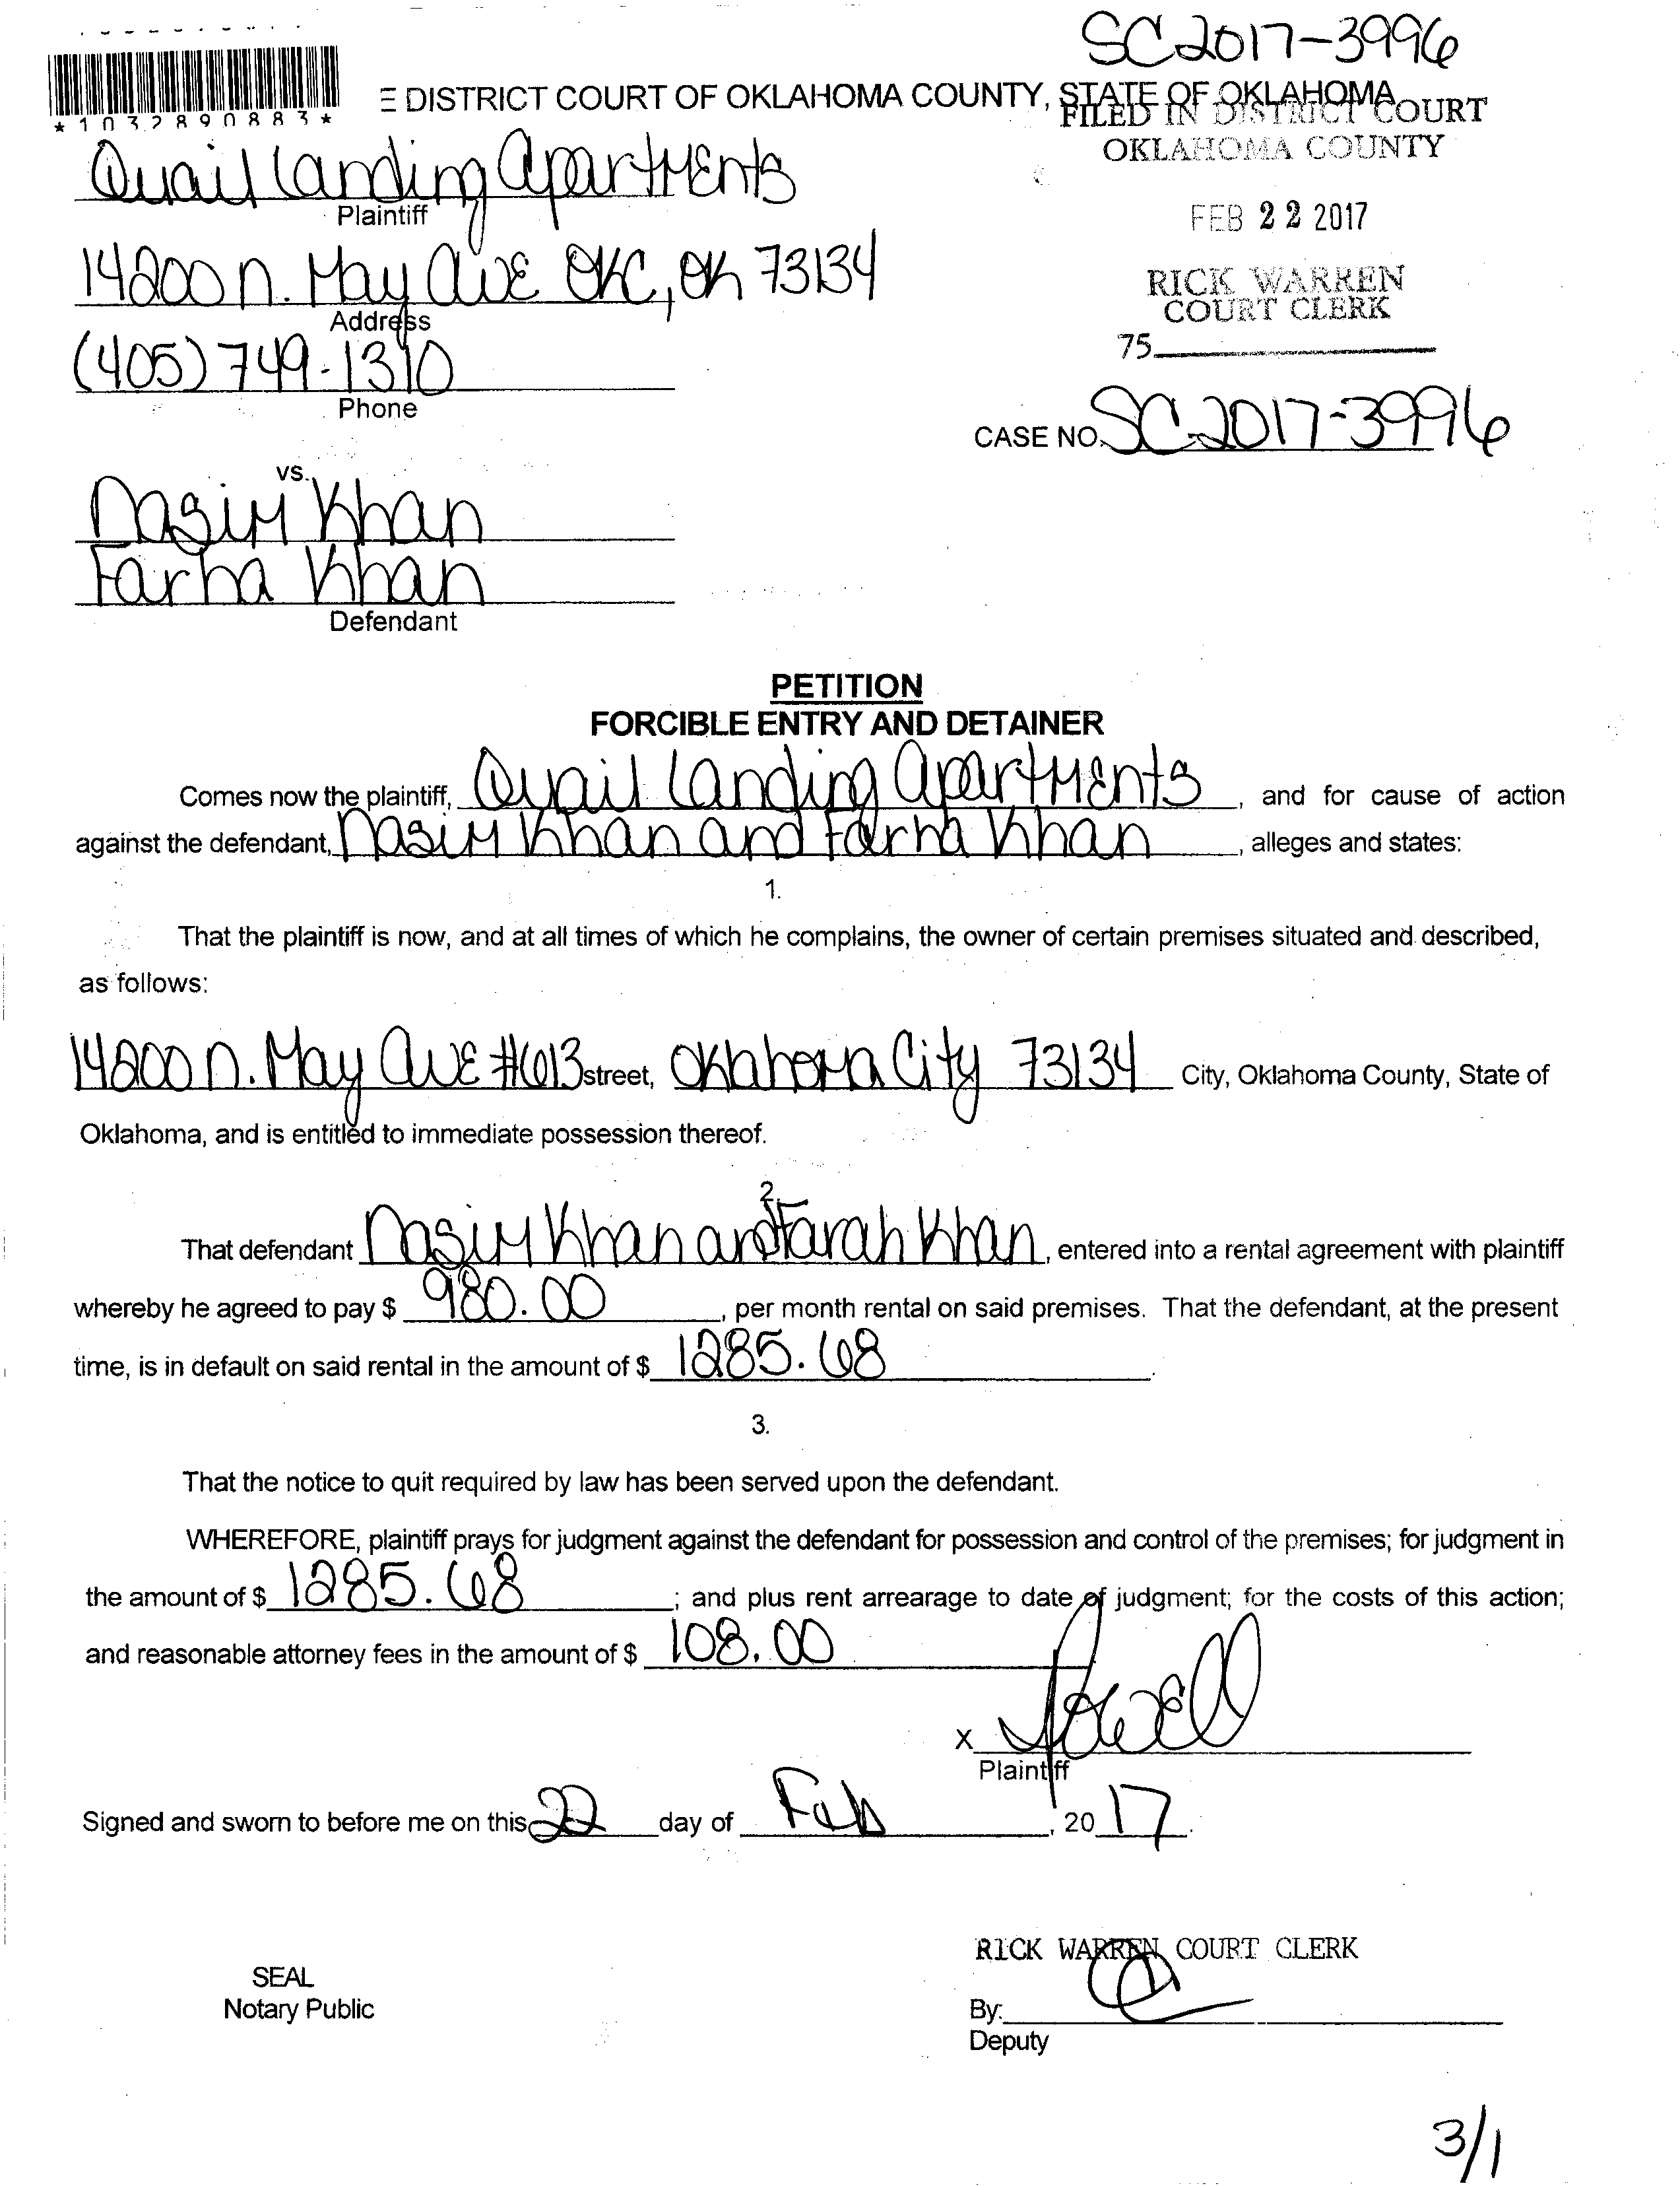 SC2017-3996
*1032890883*
E DISTRICT COURT OF OKLAHOMA COUNTY, STATE OF OKLAHOMA
FILED IN DISTRICT COURT
OKLAHOMA COUNTY
Quail Landing Apartments
Plaintiff
FEB 22 2017
14200 N. May Ave OKC, OK 73134
Address
RICK WARREN
COURT CLERK
75
(405) 749-1310
Phone
CASE NO. SC-2017-3996
vs.
Nasim Khan
Farha Khan
Defendant
PETITION
FORCIBLE ENTRY AND DETAINER
Comes now the plaintiff, Quail Landing Apartments, and for cause of action
against the defendant, Nasim Khan and Farha Khan, alleges and states:
1.
That the plaintiff is now, and at all times of which he complains, the owner of certain premises situated and described,
as follows:
14200 N. May Ave #613 street, Oklahoma City 73134 City, Oklahoma County, State of
Oklahoma, and is entitled to immediate possession thereof.
2.
That defendant Nasim Khan and Farah Khan, entered into a rental agreement with plaintiff
whereby he agreed to pay $ 980.00, per month rental on said premises. That the defendant, at the present
time, is in default on said rental in the amount of $ 1285.68.
3.
That the notice to quit required by law has been served upon the defendant.
WHEREFORE, plaintiff prays for judgment against the defendant for possession and control of the premises; for judgment in
the amount of $ 1285.68; and plus rent arrearage to date of judgment; for the costs of this action;
and reasonable attorney fees in the amount of $ 108.00
X
Plaintiff
Signed and sworn to before me on this 22 day of Feb, 2017.
RICK WARREN COURT CLERK
SEAL
Notary Public
By:
Deputy
3/1